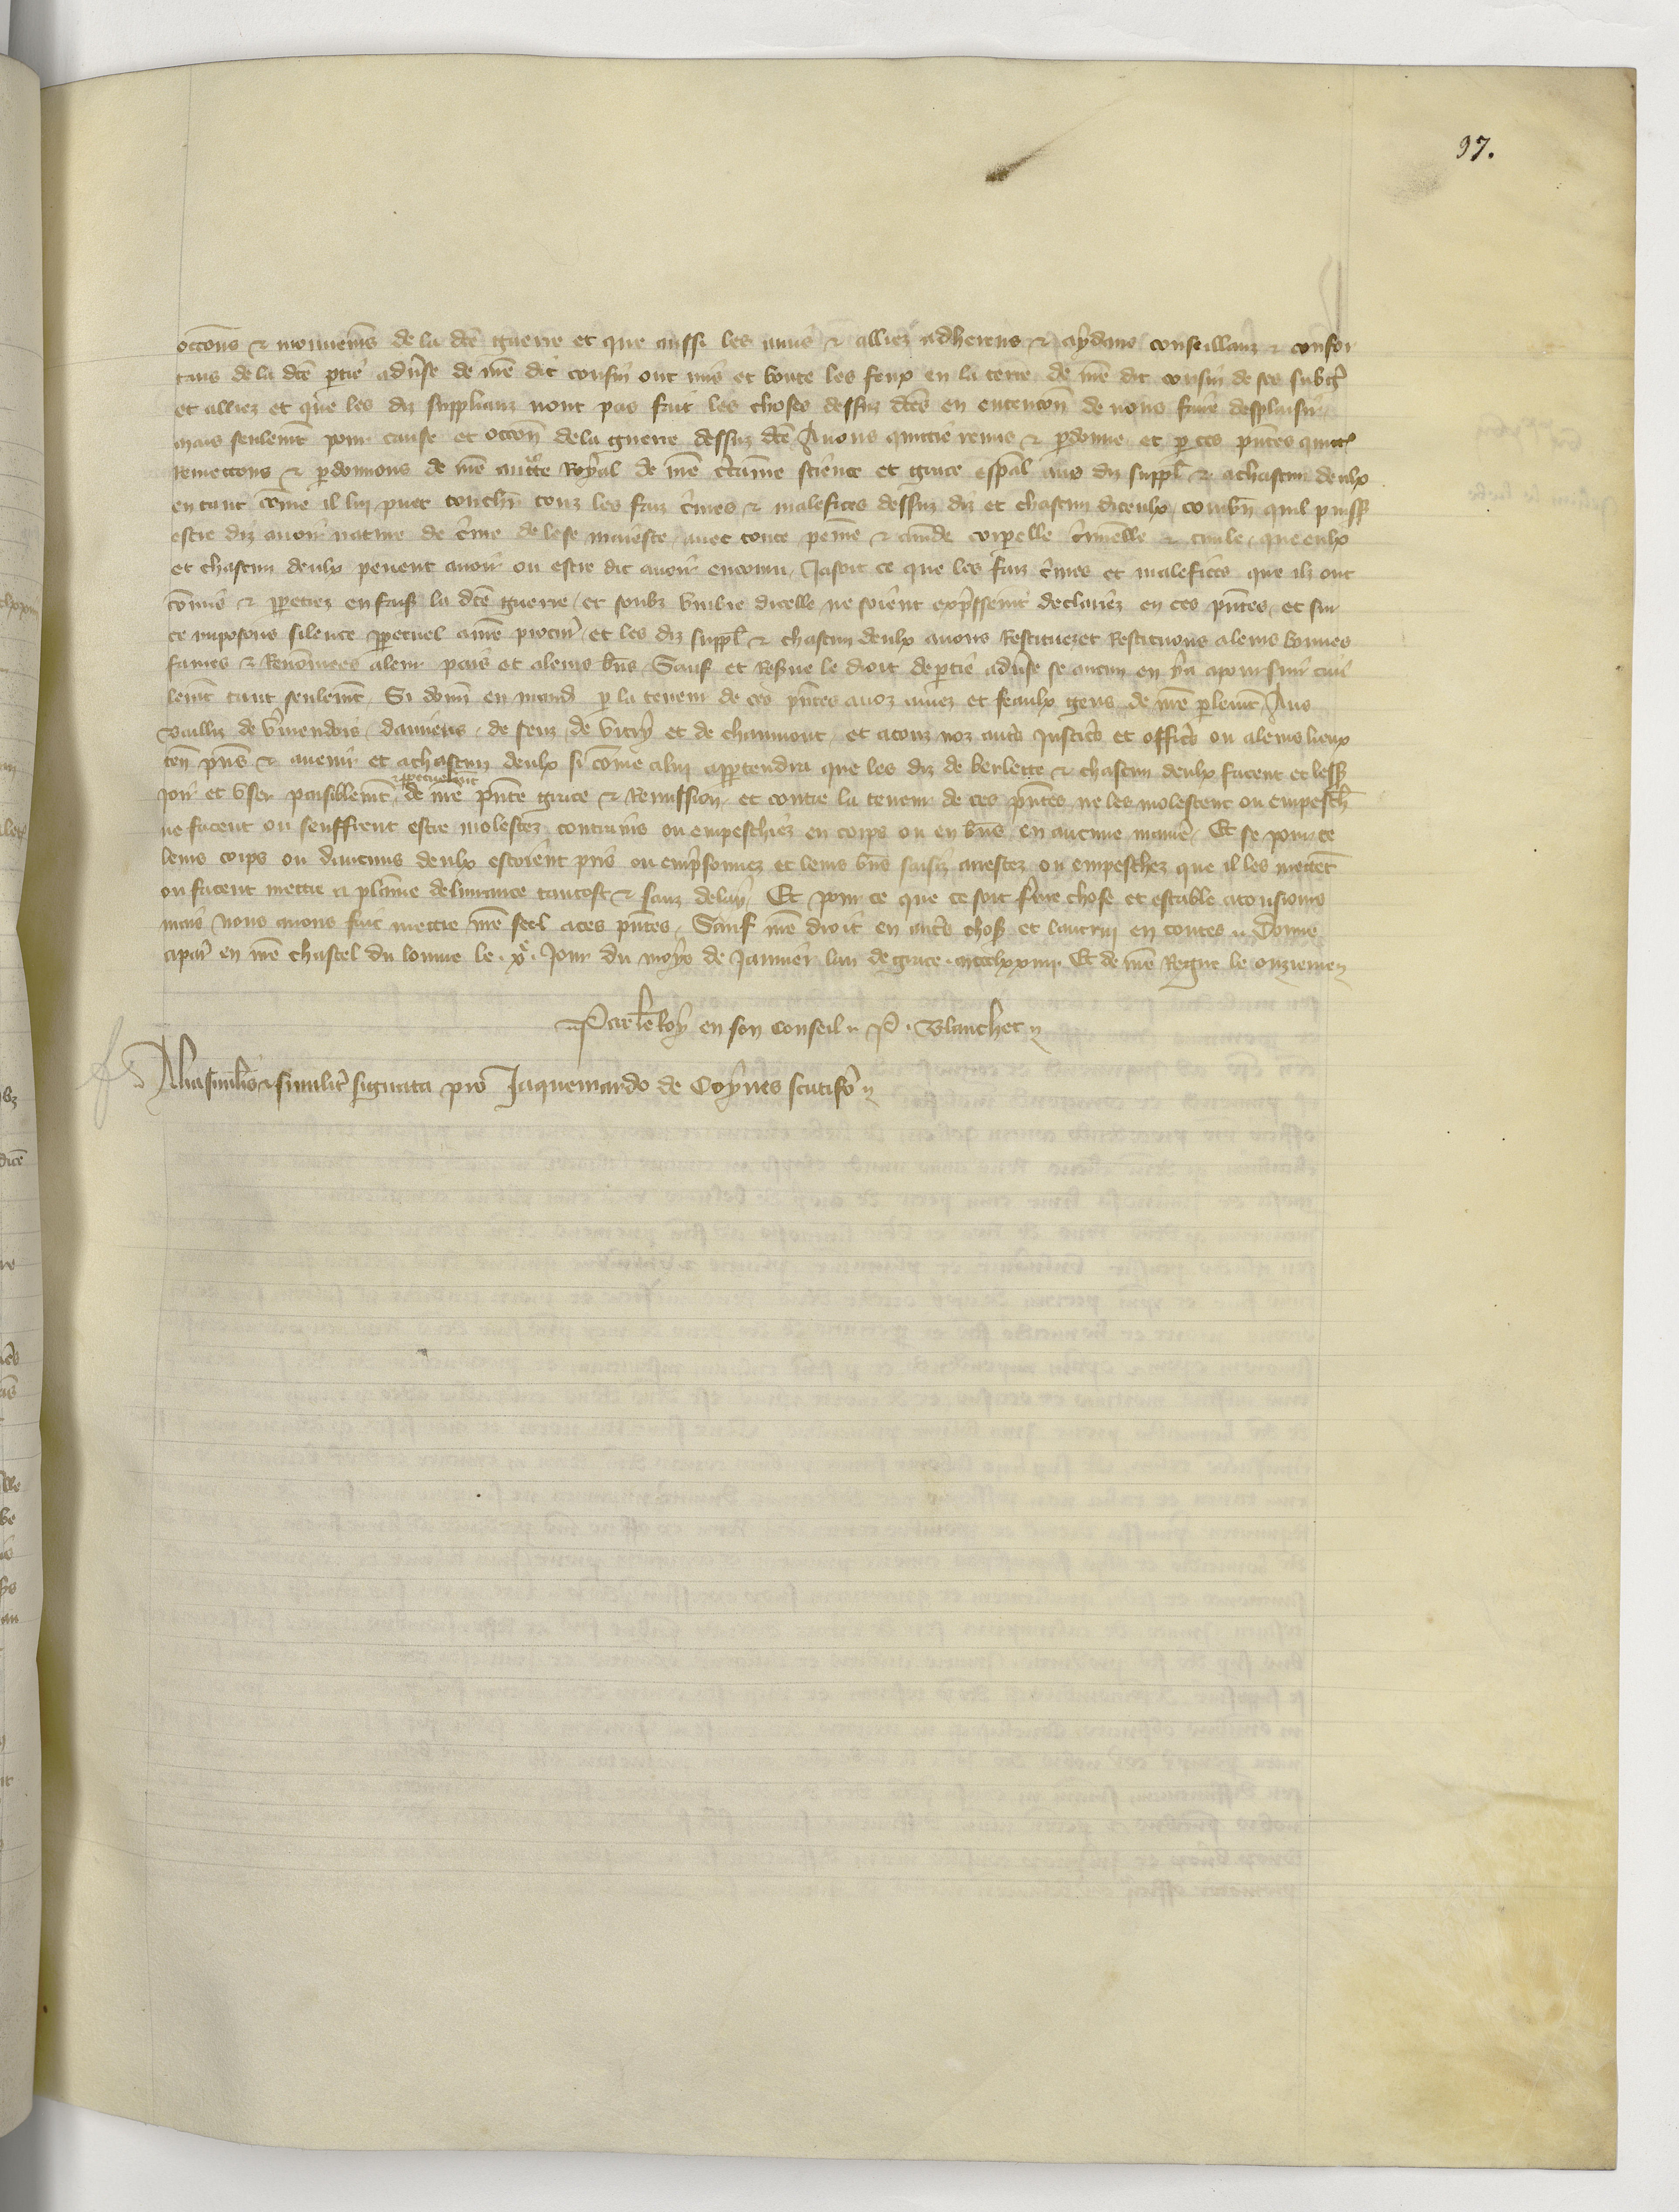 97.
occons & mouuemens de la dce guerre et que aussi les amis & alliez adherens & aydans conseillanz & confor
tans de la dce ptie aduse de nre dit cousin ont mis et boute les feux en la terre de nre dit cousin de ses subgz
et alliez et que les diz supplianz nont pas fait les choses dessuz dces en entencon de nous faire desplaisir
mais seulemt pour cause et occon de la guerre dessuz dce Auons quictie remis & pdonne et p ces pntes quictons
remettons & pdonnons de nre auctte Royal de nre ctaine science et grace espal aus diz suppl & a chascun deulx
en tant come il luy puet touch touz les faiz cmes & malefices dessuz diz et chascun diceulx combn quil puiss
estre diz auoir nature de cme de lese maieste auec toute peine & amde corpelle cminelle & ciuile que eulx
et chascun deulx peuent auoir ou estre dit auoir encouru Jasoit ce que les faiz cmes et malefices que ilz ont
comis & ppetrez en fais la dce guerre et soubz vmbre dicelle ne soient expssemt declairez en ces pntes et sur
ce imposons silence ppetuel a nre procur et les diz suppl & chascun deulx auons Restituez et Restituons a leurs bonnes
fames & Renommees a leur pais et a leurs bns Sauf et Reserue le droit de ptie aduse se aucun en y a a poursuir ciui
lemt tant seulemt Si donn en mand p la teneur de ces pntes a noz amez et feaulx gens de nre plemt Aus
Bailliz de vmendois damiens de senz de vitry et de chaumont et a touz noz autres Justic et offic ou a leurs lieux
ten pns & auenir et a chascun deulx si come a luy apptendra que les diz de berlette & chascun deulx facent et less
& ppetuelmt
Joir et vser paisiblemt de nre pnte grace & Remission et contre la teneur de ces pntes ne les molestent ou empesch
ne facent ou seuffrent estre molestez contrains ou empeschiez en corps ou en bns en aucune maniere Et se pour ce
leurs corps ou daucuns deulx estoient pris ou empsonnez et leurs bns saisiz arrestez ou empeschez que il les mettet
ou facent mettre a plaine deliurance tantost & sanz delay Et pour ce que ce soit ferme chose et estable a tousiours
mais Nous auons fait mettre nre seel a ces pntes Sauf nre droit en autres chos et lautruy en toutes Donne
a par en nre chastel du louure le xe Jour du moys de Januier lan de grace mccclxxiiii Et de nre Regne le onzieme
Par le Roy en son conseil P. Blanchet
Alia similis & similit signata pro Jaquemardo de Coynes scutifo